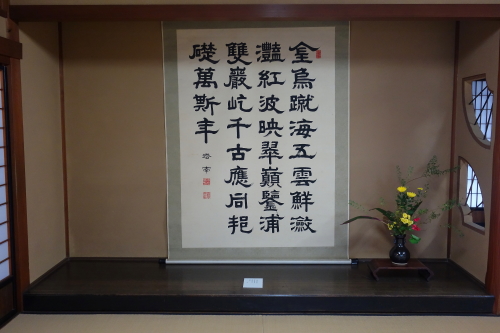 金烏蹴海五雲鮮瀲
灩紅波映翠巓鑒浦
雙巖屹千古應同邦
礎萬斯年